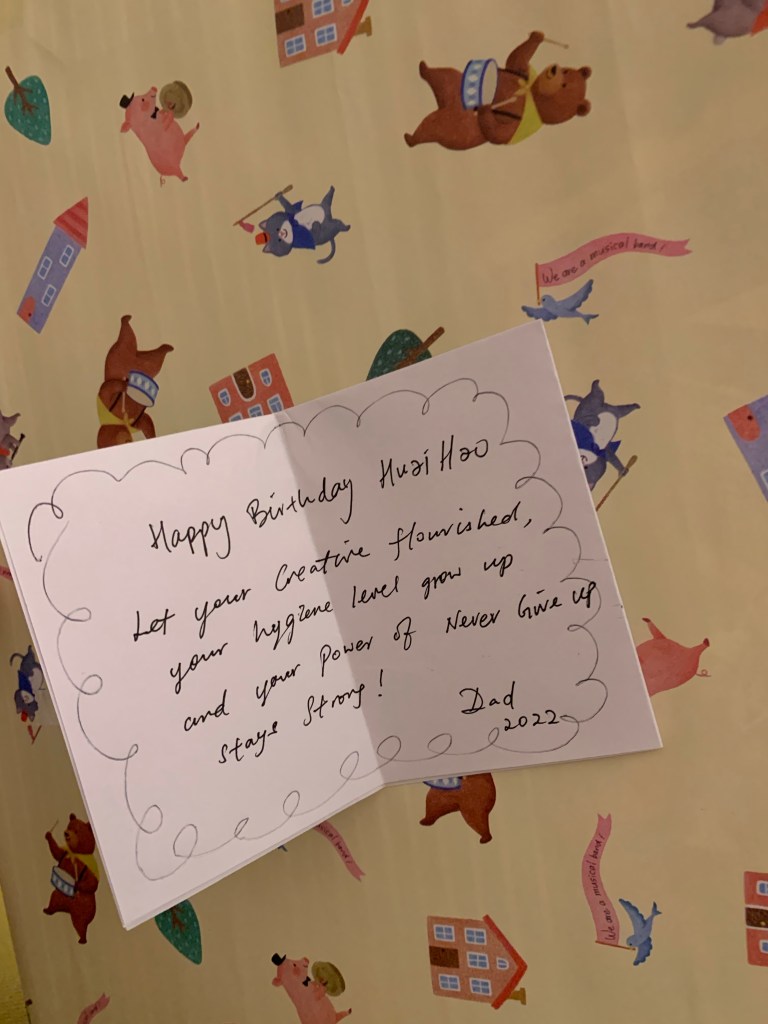 We are a musical band!
Happy Birthday Huai Hao
Let your Creative flourished,
your hygiene level grow up
and your Power of Never Give up
stays Strong!
Dad
2022
We are a musical band!